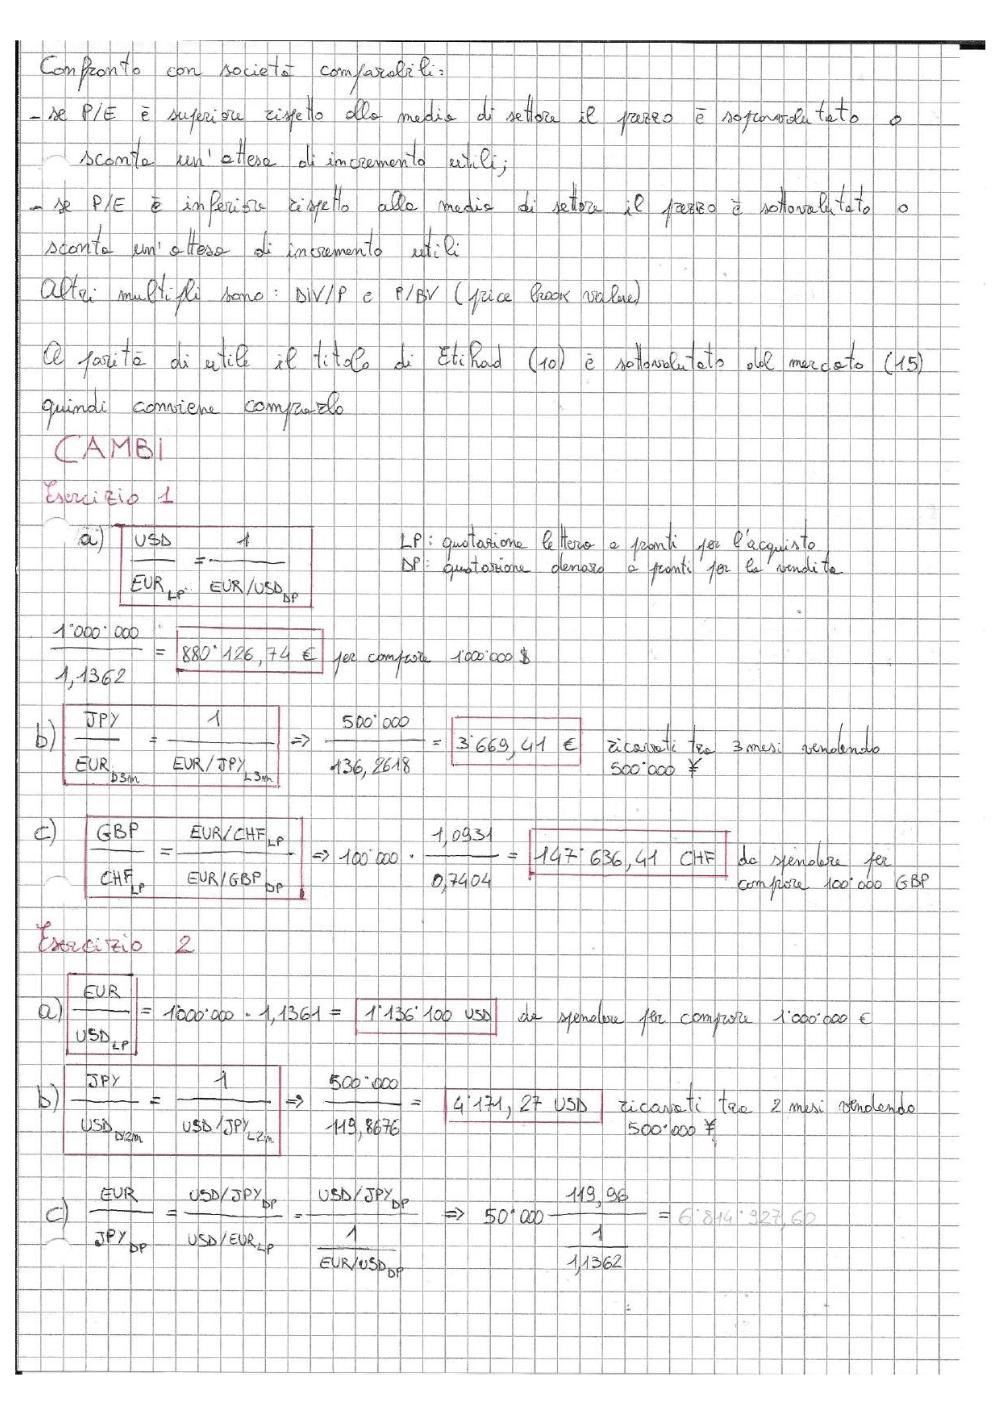 Confronto con società comparabili:
- se P/E è superiore rispetto alla media di settore il prezzo è sopravvalutato o
sconta un'attesa di incremento utili;
- se P/E è inferiore rispetto alla media di settore il prezzo è sottovalutato o
sconta un'attesa di incremento utili
Altri multipli sono: DIV/P e P/BV (price book value)
A parità di utile il titolo di Etihad (10) è sottovalutato dal mercato (15)
quindi conviene comprarlo
CAMBI
Esercizio 1
a) USD/EUR LP = 1/EUR/USD DP
LP: quotazione lettera a pronti per l'acquisto
DP: quotazione denaro a pronti per la vendita
1'000'000/1,1362 = 880'126,74 € per comprare 1'000'000 $
b) JPY/EUR D3m = 1/EUR/JPY L3m => 500'000/136,2618 = 3'669,41 € ricavati tra 3 mesi vendendo
500'000 ¥
c) GBP/CHF LP = EUR/CHF LP/EUR/GBP DP => 100'000 · 1,0931/0,7404 = 147'636,41 CHF da spendere per
comprare 100'000 GBP
Esercizio 2
a) EUR/USD LP = 1'000'000 · 1,1361 = 1'136'100 USD da spendere per comprare 1'000'000 €
b) JPY/USD D2m = 1/USD/JPY L2m => 500'000/119,8676 = 4'171,27 USD ricavati tra 2 mesi vendendo
500'000 ¥
c) EUR/JPY DP = USD/JPY DP/USD/EUR LP = USD/JPY DP/1/EUR/USD DP => 50'000 119,96/1/1,1362 = 6'814'927,60